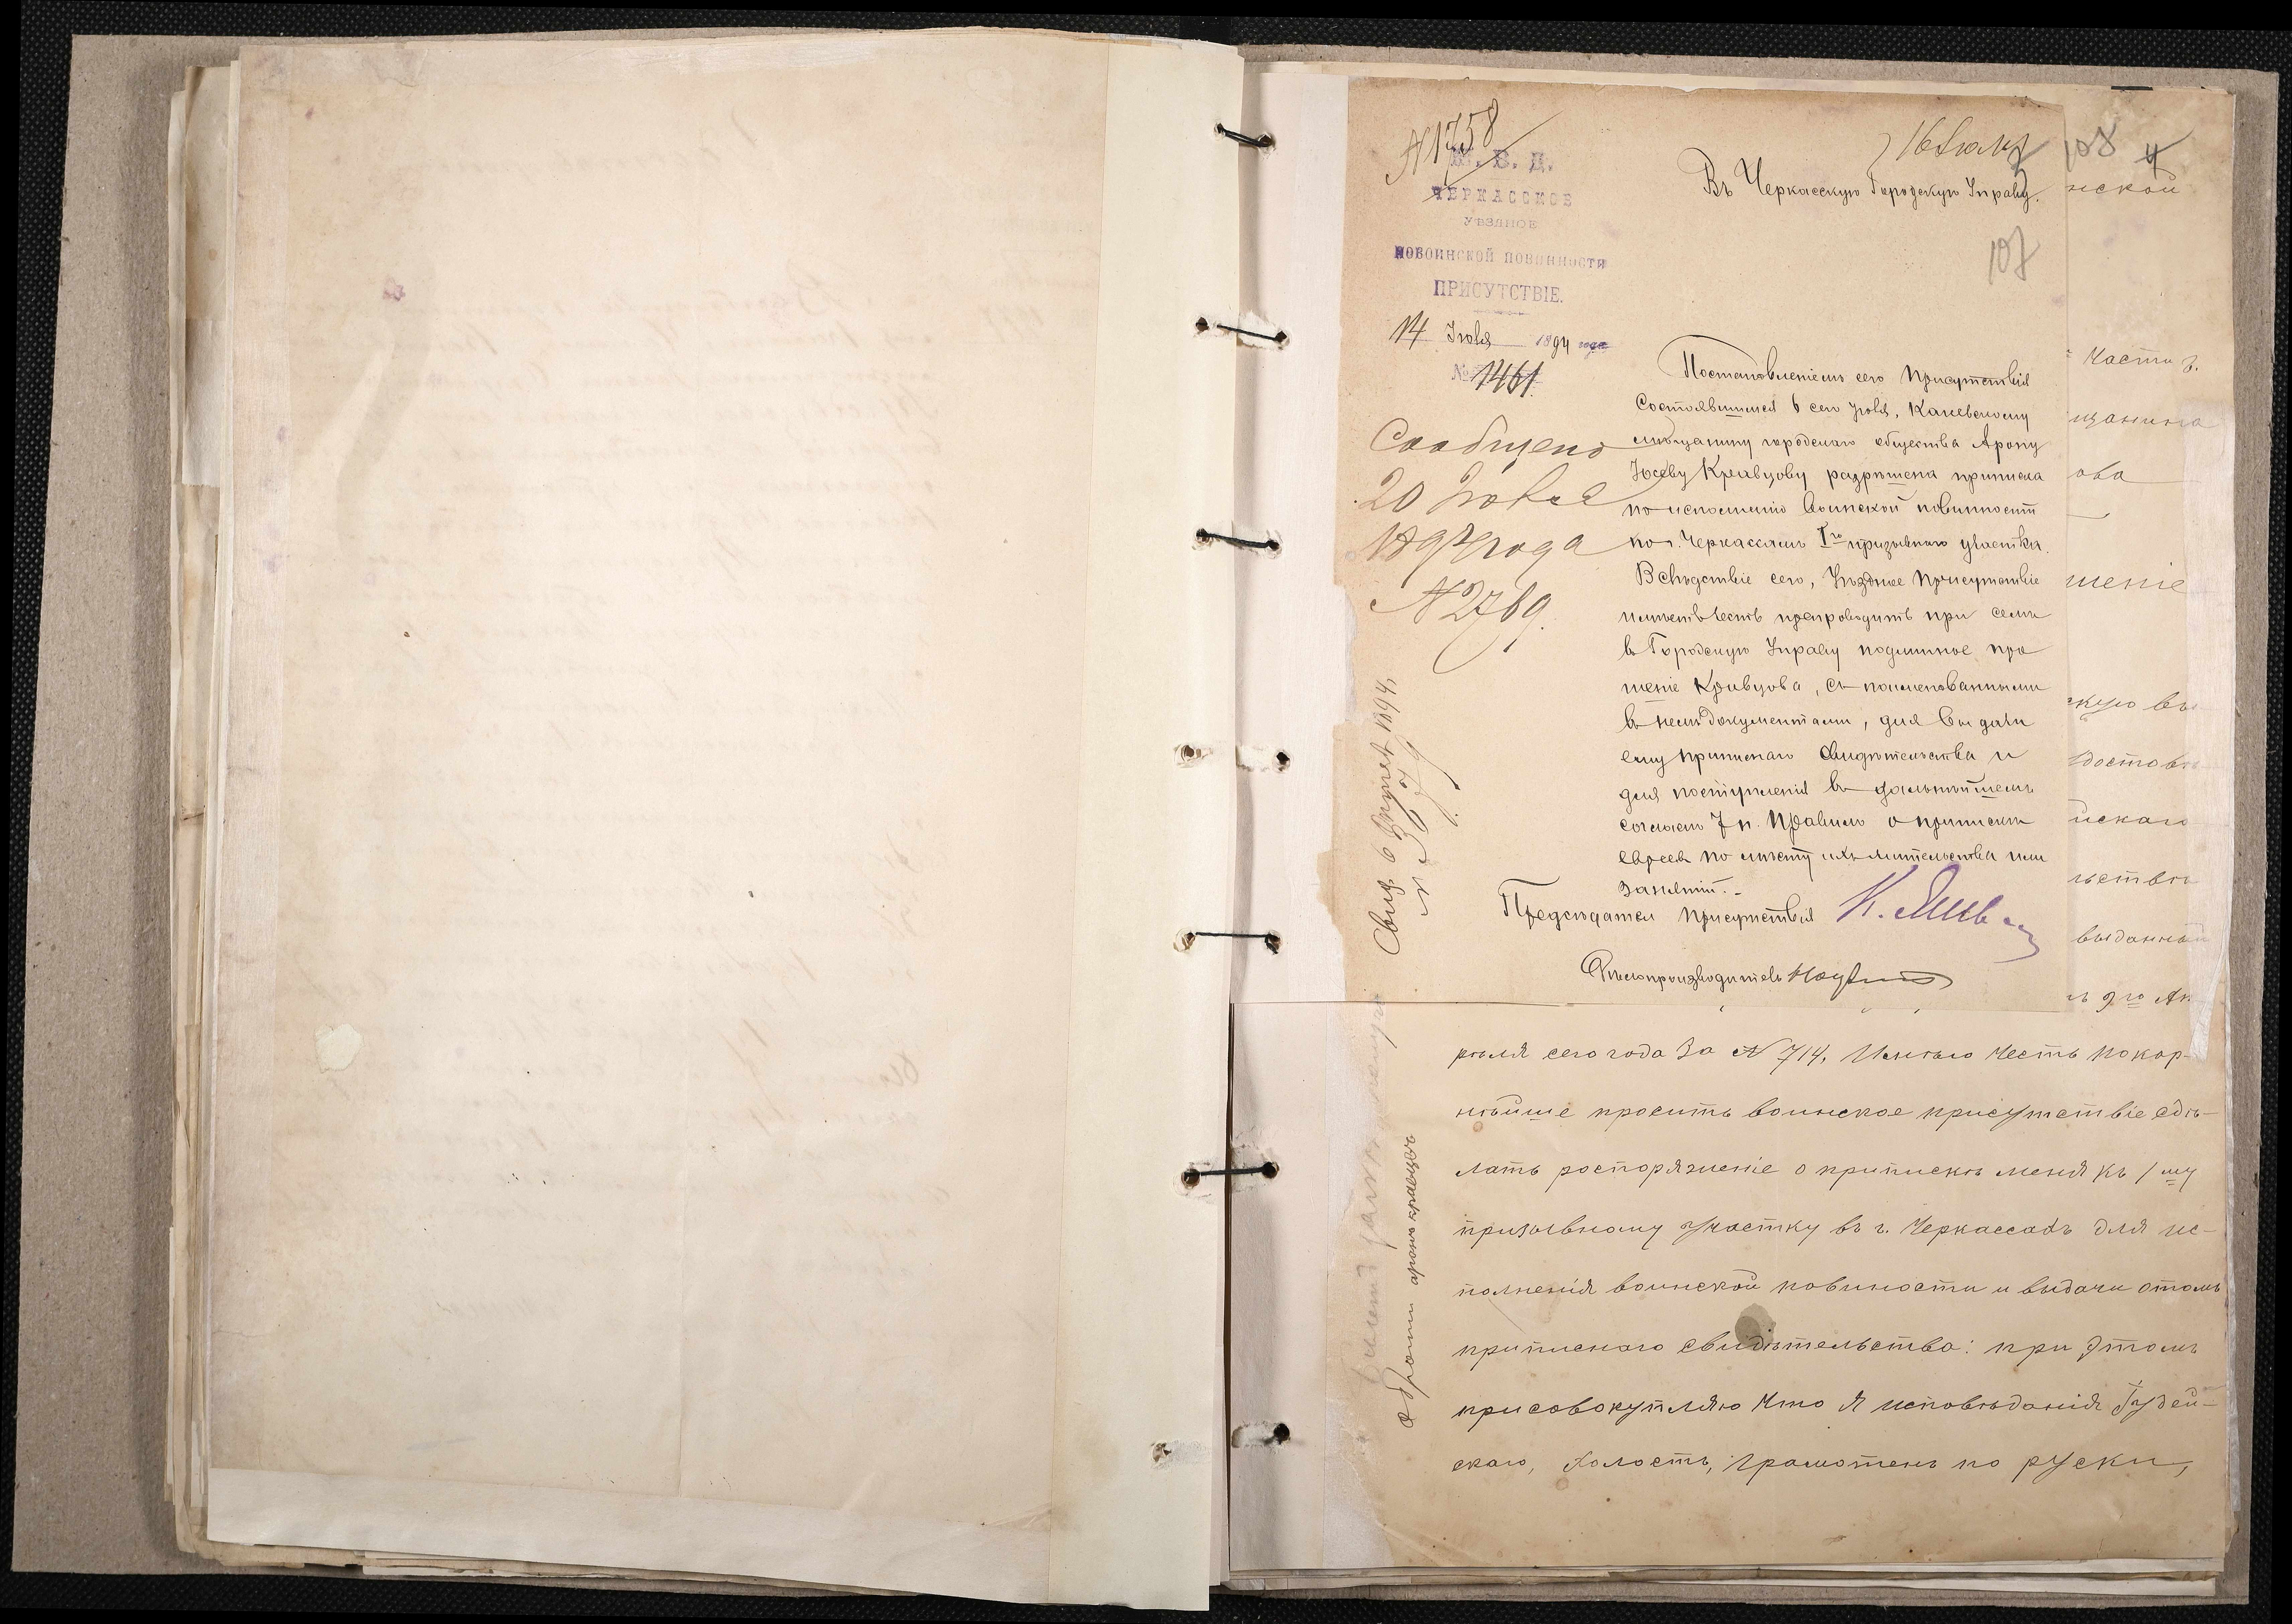 N 1758
М. В. Д.
ЧЕРКАССКОЕ
УѢЗДНОЕ
ПО ВОИНСКОЙ ПОВИННОСТИ
ПРИСУТСТВІЕ.
14 Іюля 1894 года
№ 1461
16 Іюля
Въ Черкасскую Городскую Управу.
107
108
4
Сообщено
20 Іюля
1894 года
N 2769.
Постановленіемъ сего Присутствія
Состоявшимся 6 сего Іюля, Каневскому
мѣщанину городскаго общества Арону
Іосеву Кравцову разрѣшена приписка
по исполненію воинской повинности
по г. Черкассамъ Iго призывнаго участка.
Вслѣдствіе сего, Уѣздное Присутствіе
имѣетъ честь препроводить при семъ
въ Городскую Управу подлинное про
шеніе Кравцова, съ поименованными
въ немъ документами, для выдачи
ему приписнаго свидѣтельства и
для поступленія въ дальнѣйшемъ
согласно 7 п. Правилъ о припискѣ
евреевъ по мѣсту ихъ жительства или
занятій.-
Предсѣдатель Присутствія
Дѣлопроизводитель
Свид. 6 Августа 1894,
нской
части г.
щанина
ова
шеніе
скую вы
достовѣ
искаго
льство
выданный
ъ 9го Ап
рѣля сего года За N 714, Имѣю честь покор-
нѣйше просить воинское присутствіе сдѣ-
лать роспоряженіе о припискѣ меня къ 1му
призывному участку въ г. Черкассахъ для ис-
полненія воинской повиности и выдачи отомъ
приписнаго свидѣтельства: при этомъ
присовокупляю что я исповѣданія Іудей-
скаго, холостъ, грамотенъ по руски,
аронъ кравцовъ